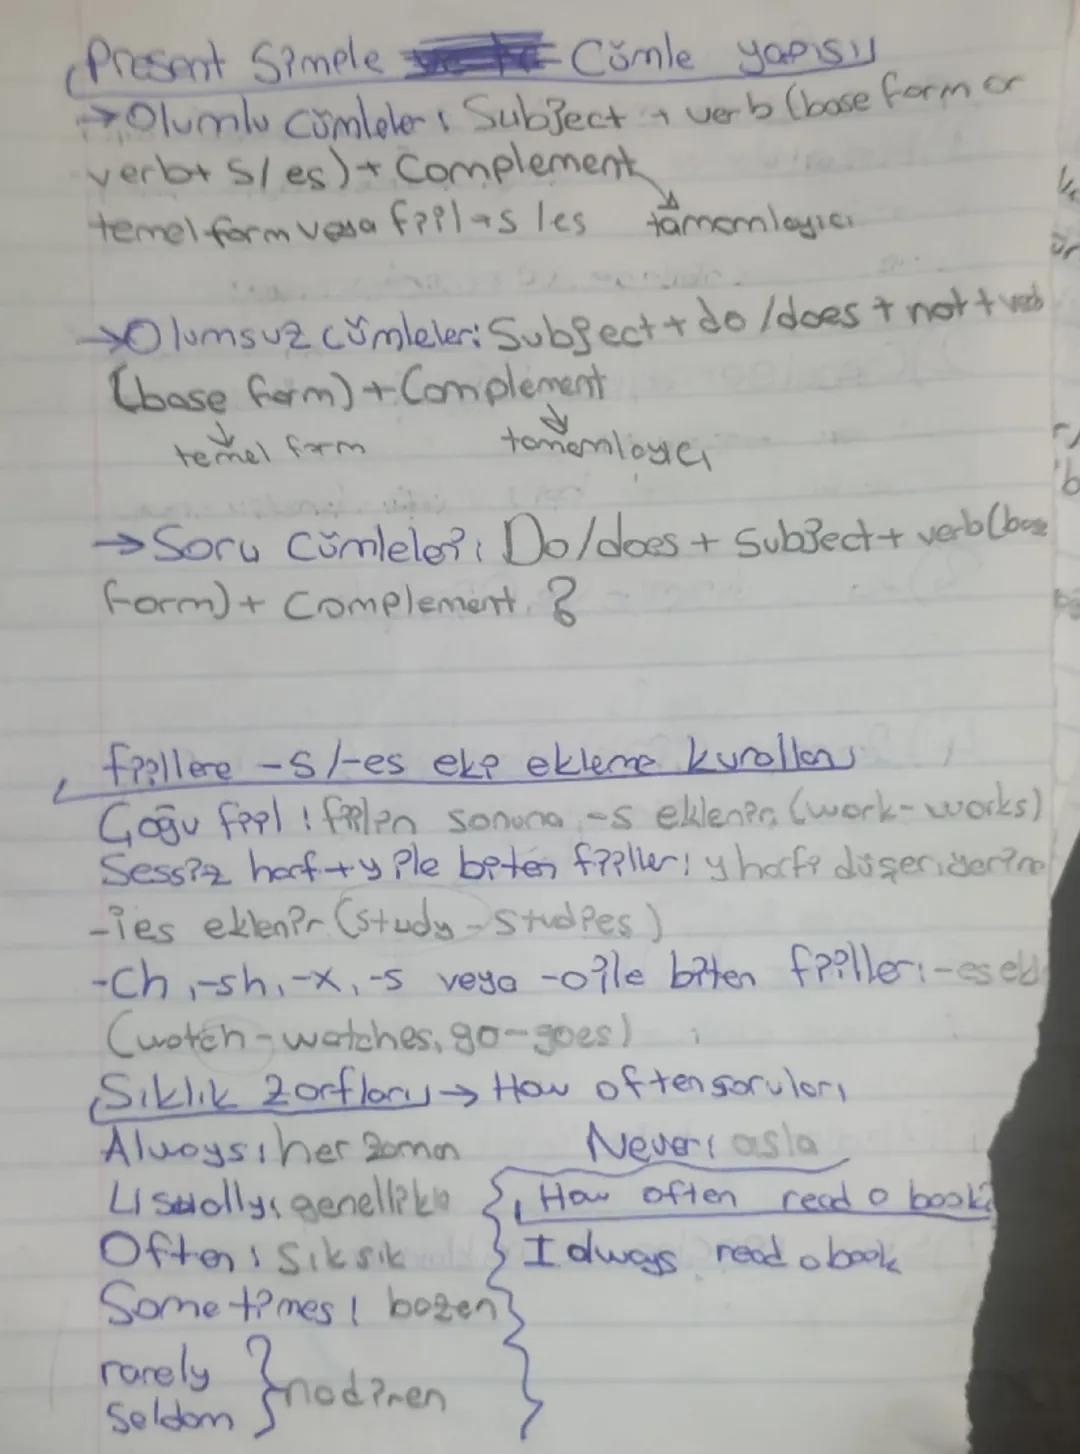 Present Simple Cümle yapısı
→ Olumlu cümleler: Subject + verb (base form or
verb+ s/es) + Complement
temel form veya fiil+s/es tamamlayıcı
→ Olumsuz cümleler: Subject + do/does + not + verb
(base form) + Complement
temel form tamamlayıcı
→ Soru Cümleleri: Do/does + subject + verb (base
form) + Complement ?
fiillere -s/-es eki ekleme kuralları
Çoğu fiil: fiilin sonuna -s eklenir, (work-works)
Sessiz harf+y ile biten fiiller: y harfi düşer, yerine
-ies eklenir (study-studies)
-Ch, -sh, -x, -s veya -o ile biten fiiller: -es
(watch-watches, go-goes)
Sıklık zarfları → How often soruları
Always: her zaman Never: asla
Usually: genellikle How often read a book?
Often: sık sık I always read a book
Sometimes: bazen
rarely
seldom } nadiren